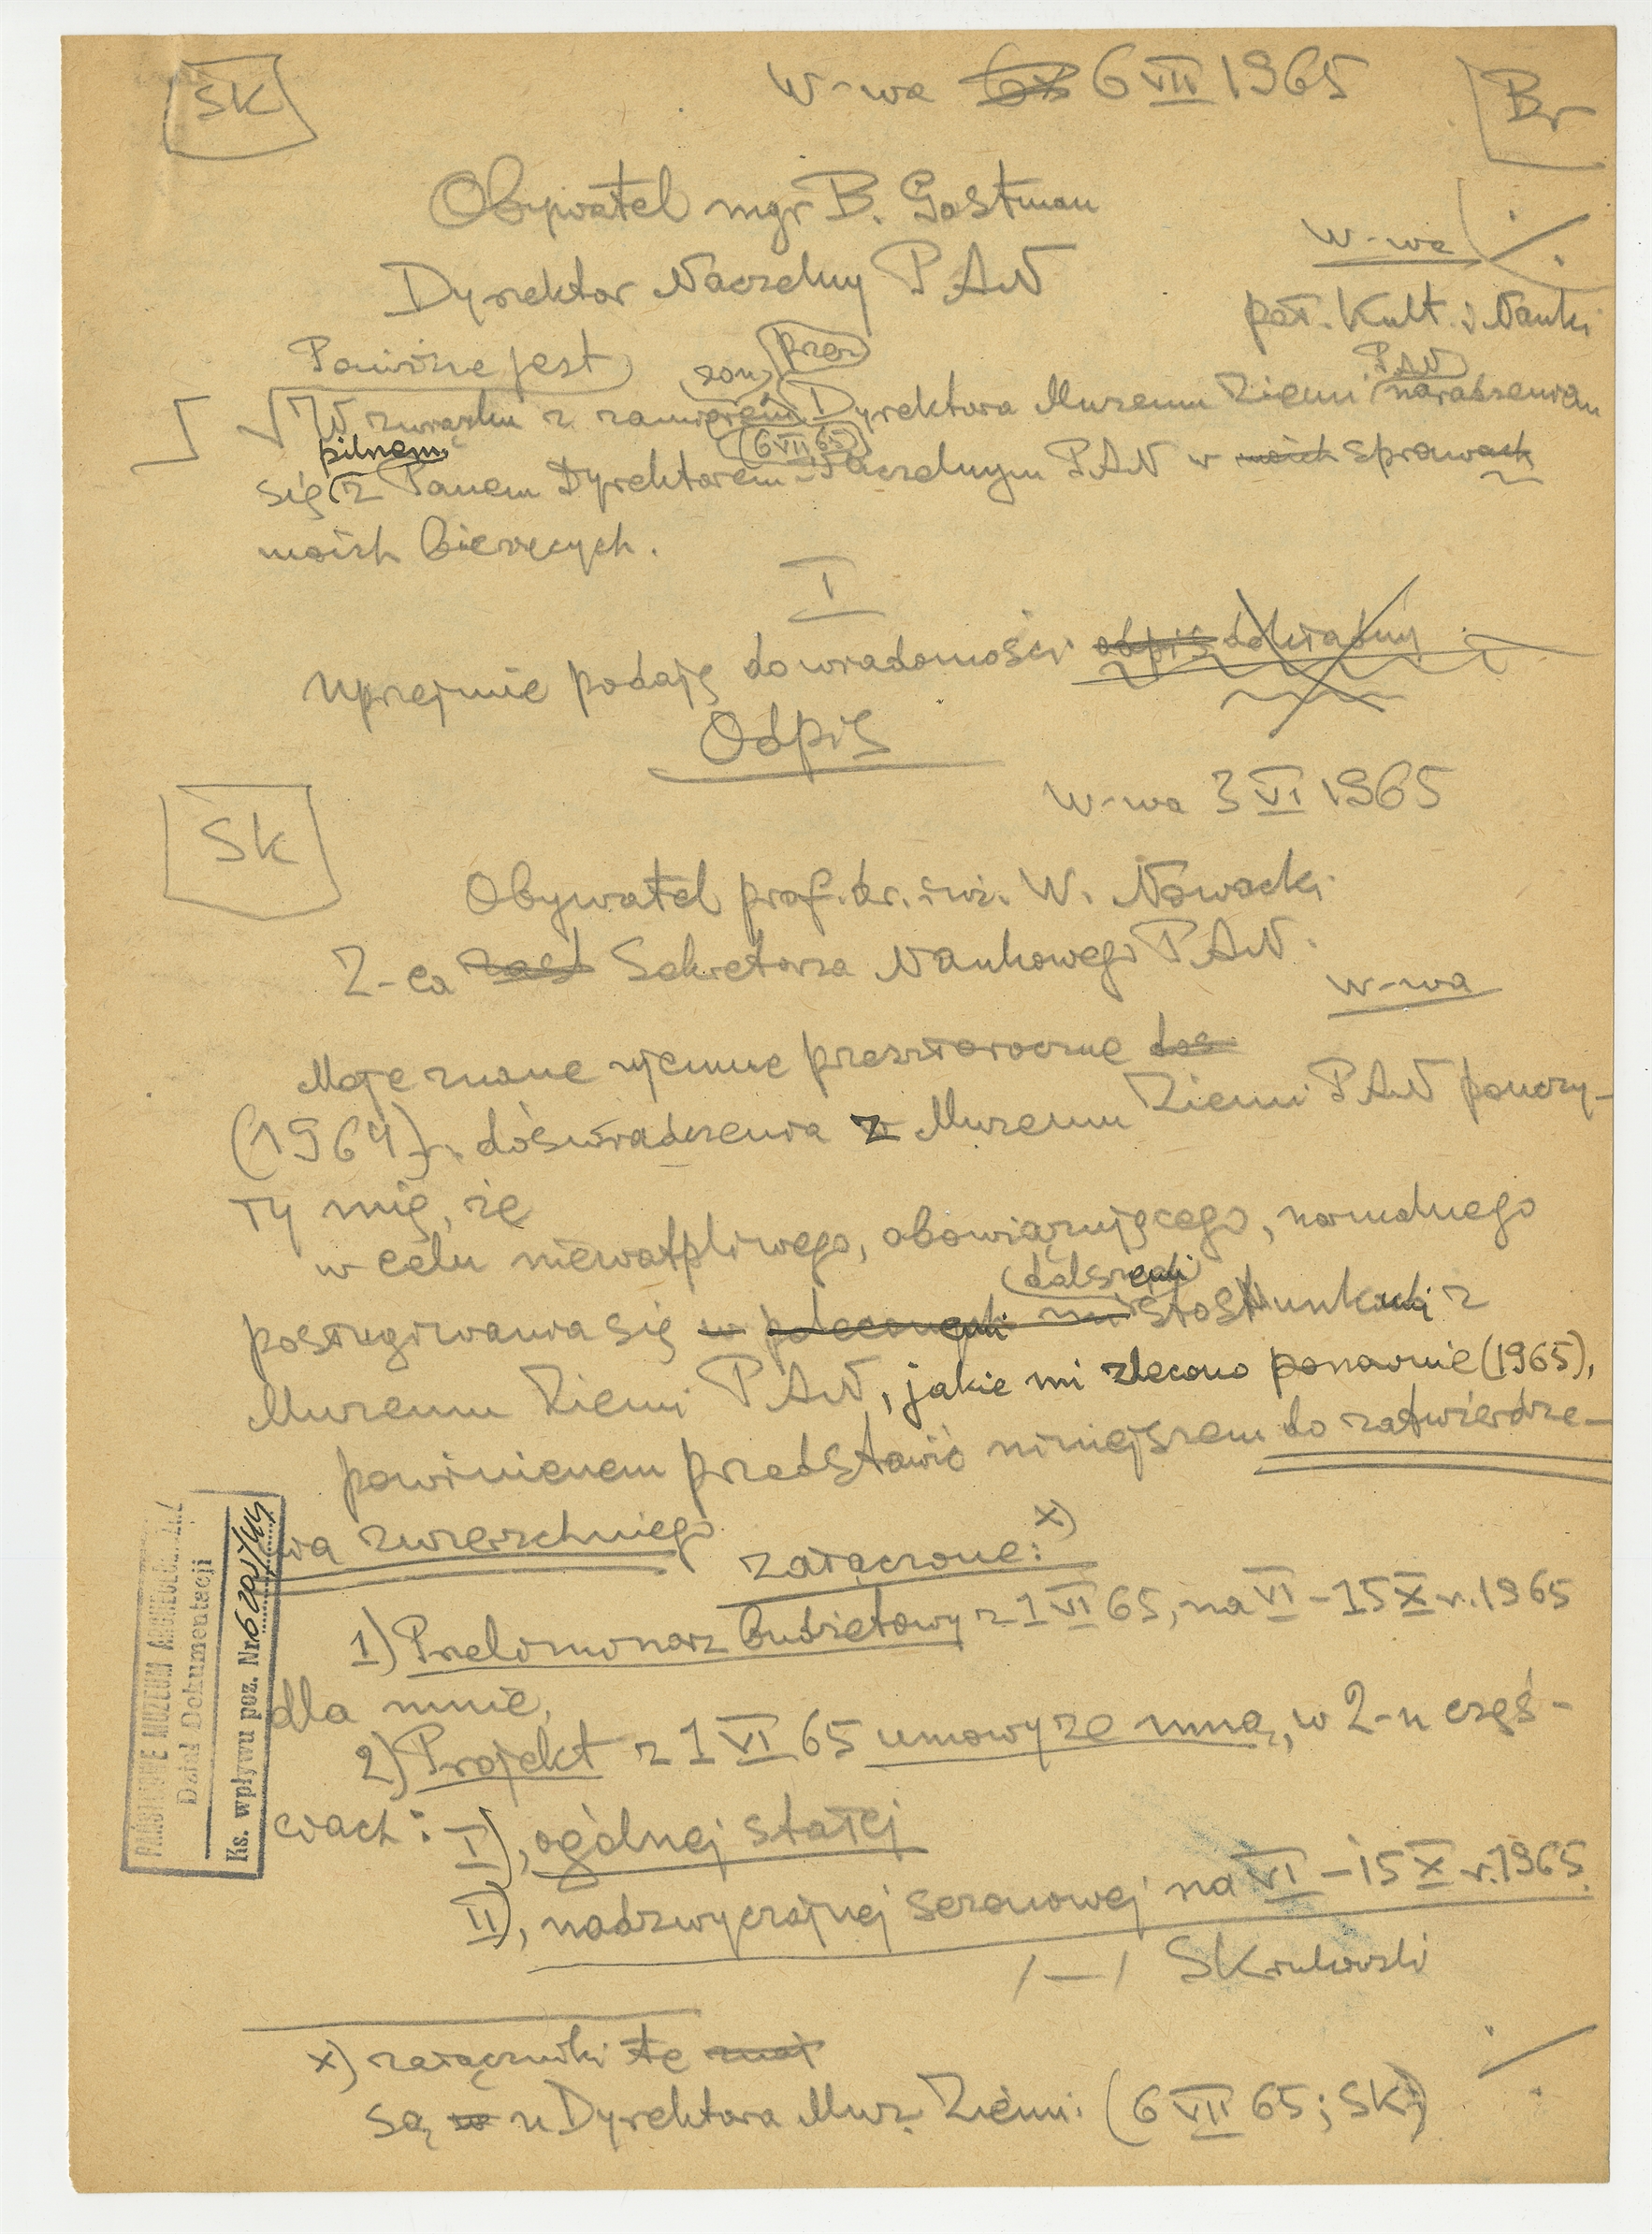 SK
W-wa 6 VII 1965
Br
Obywatel mgr B. Gostman
Dyrektor Naczelny PAN
W-wa
pał. Kult. i Nauki
Ponieważ jest
przez
PAN
W związku z zamiarem Dyrektora Muzeum Ziemi naradzenia
pilnem
(6 VII 65)
się z Panem Dyrektorem Naczelnym PAN w moich sprawach
moich bieżących.
I
uprzejmie podaję do wiadomości odpis dokładny
Odpis
SK
W-wa 3 VI 1965
Obywatel prof. dr. inż. W. Nowacki
Z-ca zast Sekretarza Naukowego PAN.
W-wa
Moje znane ujemne przeszłoroczne dos
(1964) r. doświadczenia z Muzeum Ziemi PAN pouczy-
ły mię, że
w celu niewątpliwego, obowiązującego, normalnego
(dalszemi)
posługiwania się w poleconych mi stosunkami z
Muzeum Ziemi PAN, jakie mi zlecono ponownie (1965),
powinienem przedstawić niniejszem do zatwierdze-
nia zwierzchniego
załączone: x)
1) Preliminarz budżetowy z 1 VI 65, na VI – 15 X r. 1965
dla mnie,
2) Projekt z 1 VI 65 umowy ze mną, w 2-u częś-
ciach: I), ogólnej stałej
II), nadzwyczajnej sezonowej na VI – 15 X r. 1965.
/—/ SKrukowski
x) załączniki te znaj
są w u Dyrektora Muz. Ziemi (6 VII 65; SK)
PAŃSTWOWE MUZEUM ARCHEOLOG.
Dział Dokumentacji
Ks. wpływu poz. Nr